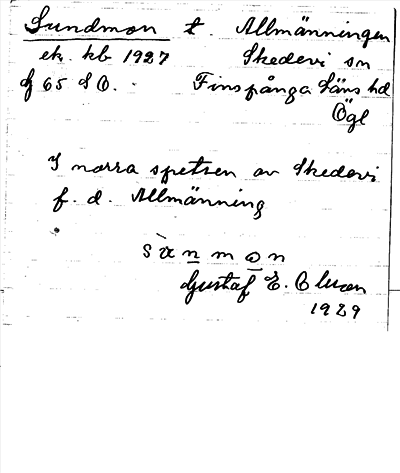 Sundmon t. Allmänningen
ek. kb 1927 Skedevi sn
J 65 SO. Finspånga läns hd
Ögl
I norra spetsen av Skedevi
f. d. Allmänning
sànmon
Gustaf E. Olson
1929